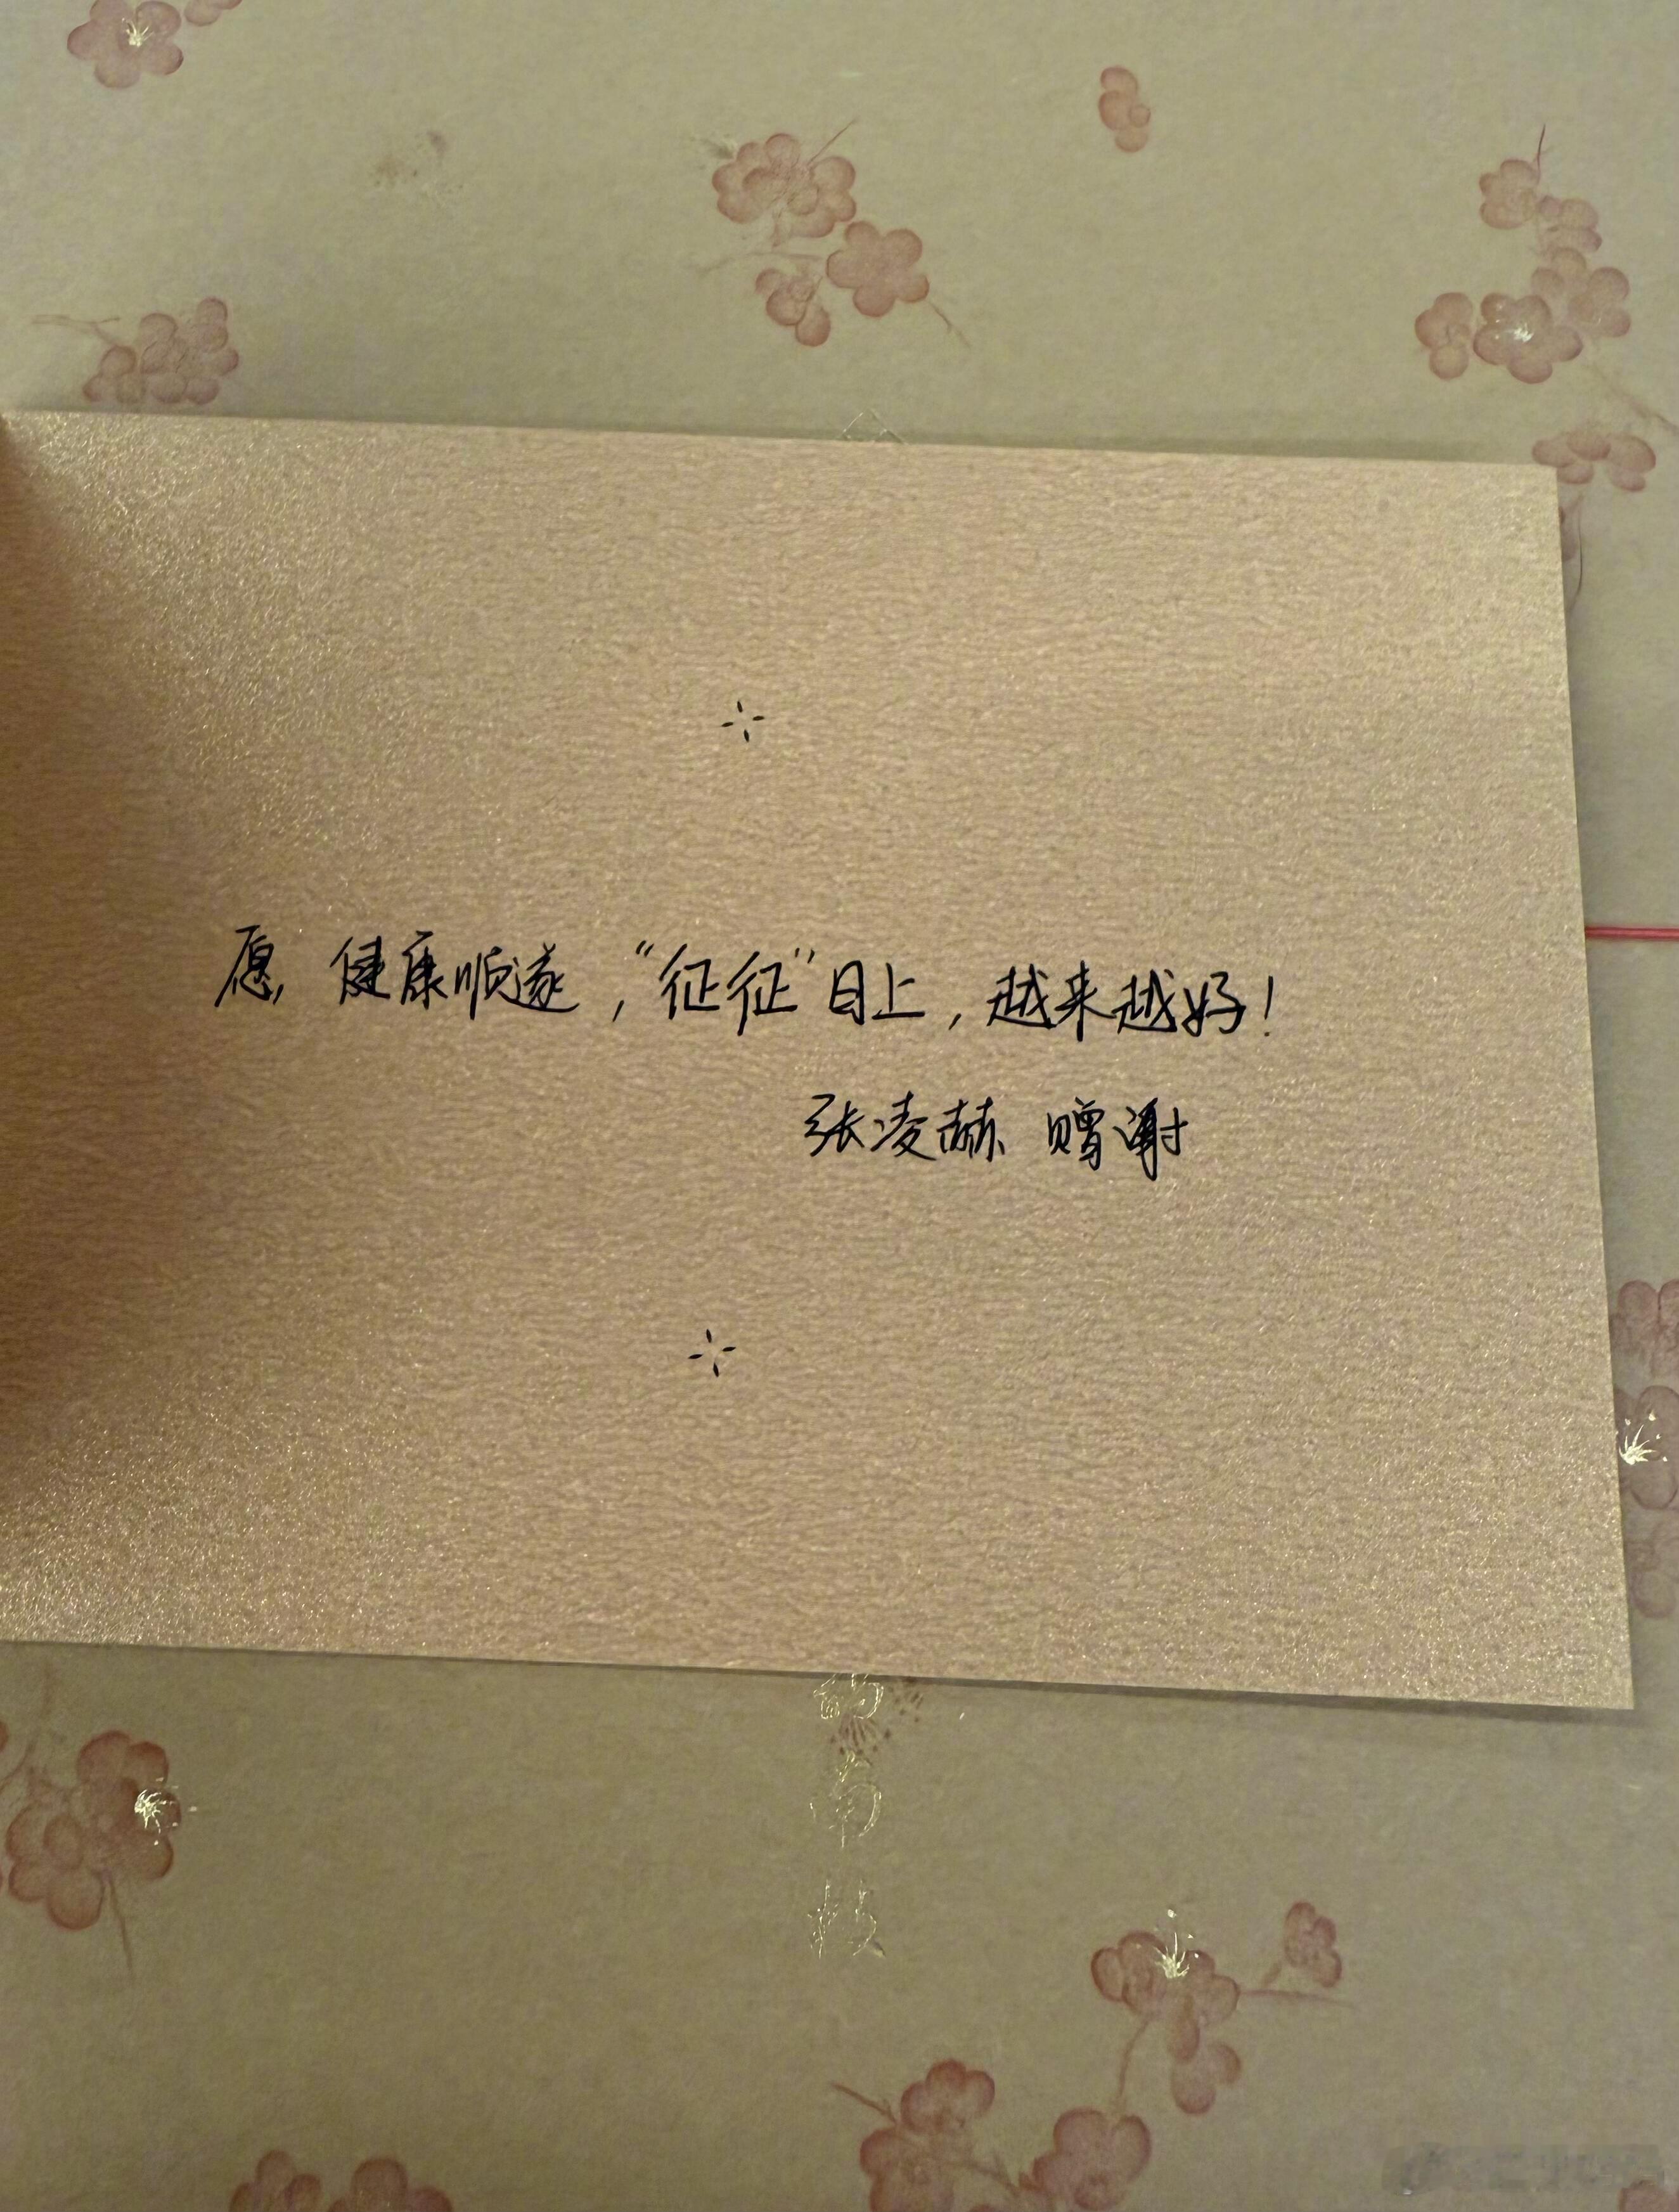 愿,健康顺遂,“征征”日上,越来越好!
张凌赫 赠谢
南
枝